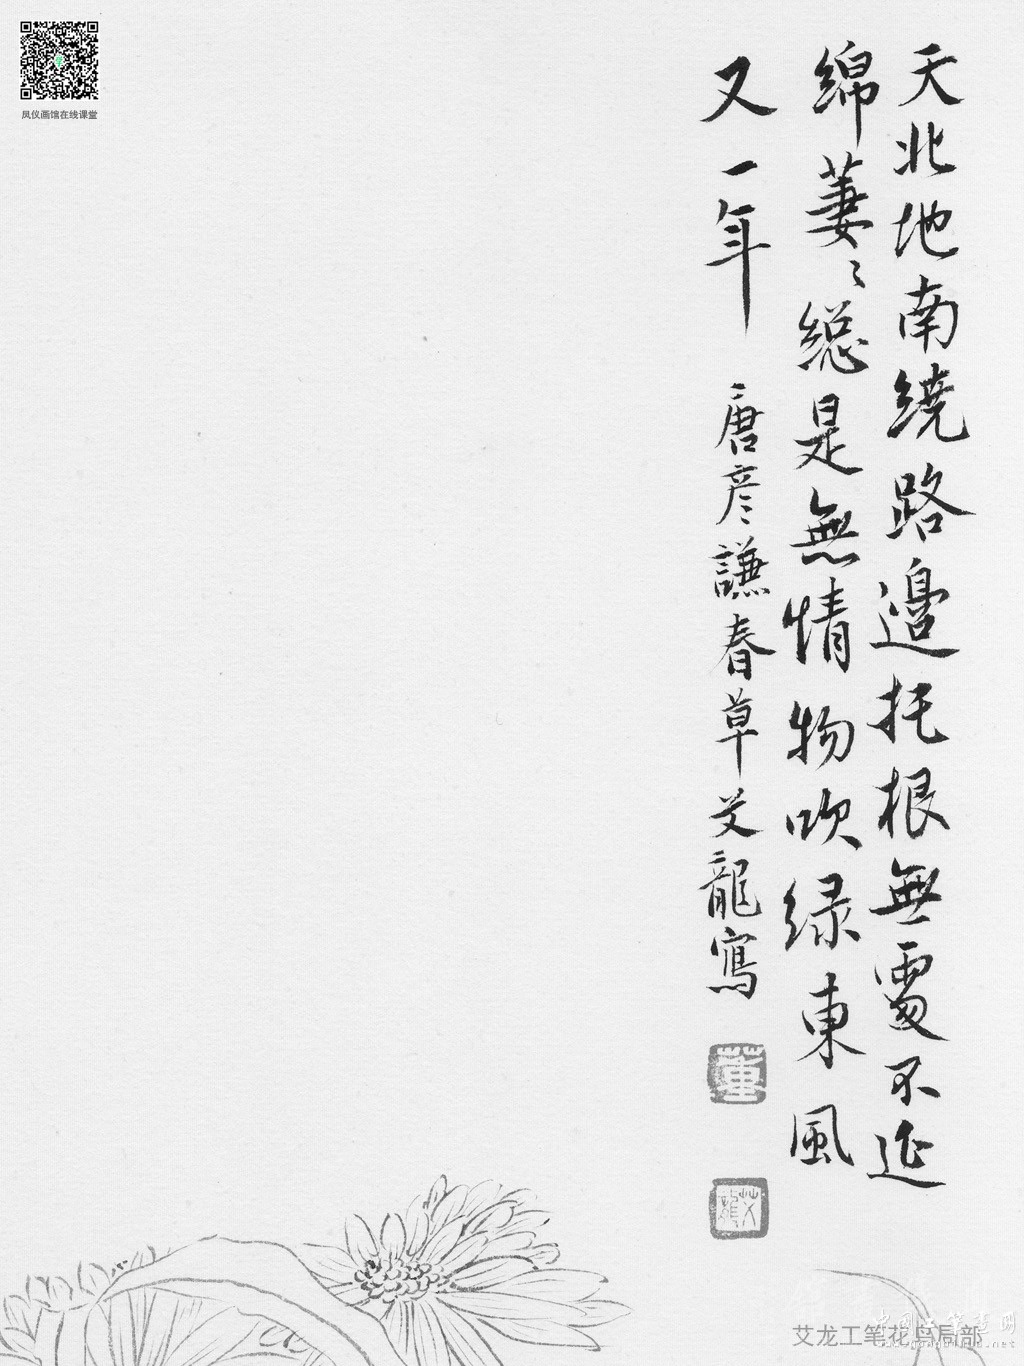 天北地南繞路邊托根無處不延
綿萋〻總是無情物吹綠東風
又一年 唐彥謙春草艾龍寫
董
艾龍
凤仪画馆在线课堂
艾龙工笔花鸟局部
中国工笔画网